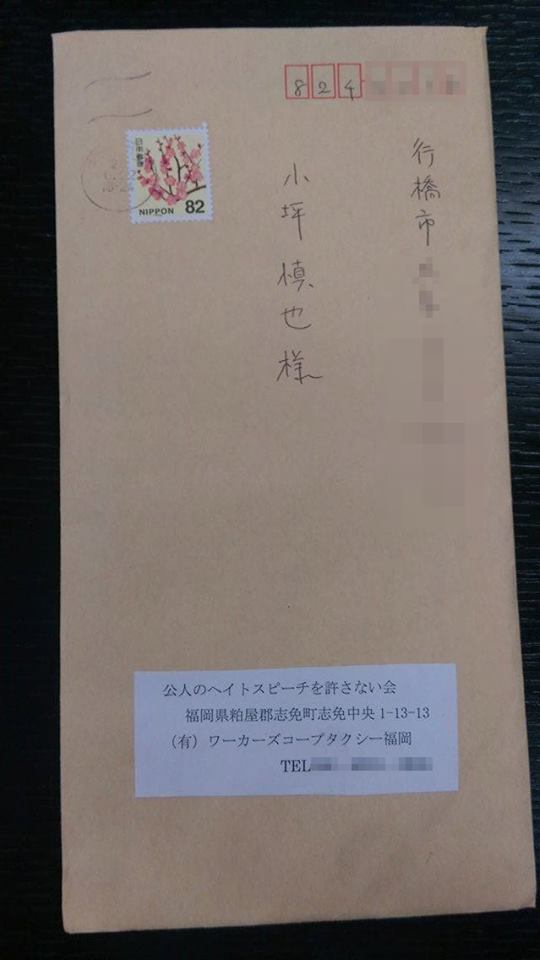 824
行橋市
小坪慎也様
日本郵便
NIPPON 82
公人のヘイトスピーチを許さない会
福岡県粕屋郡志免町志免中央1-13-13
（有）ワーカーズコープタクシー福岡
TEL